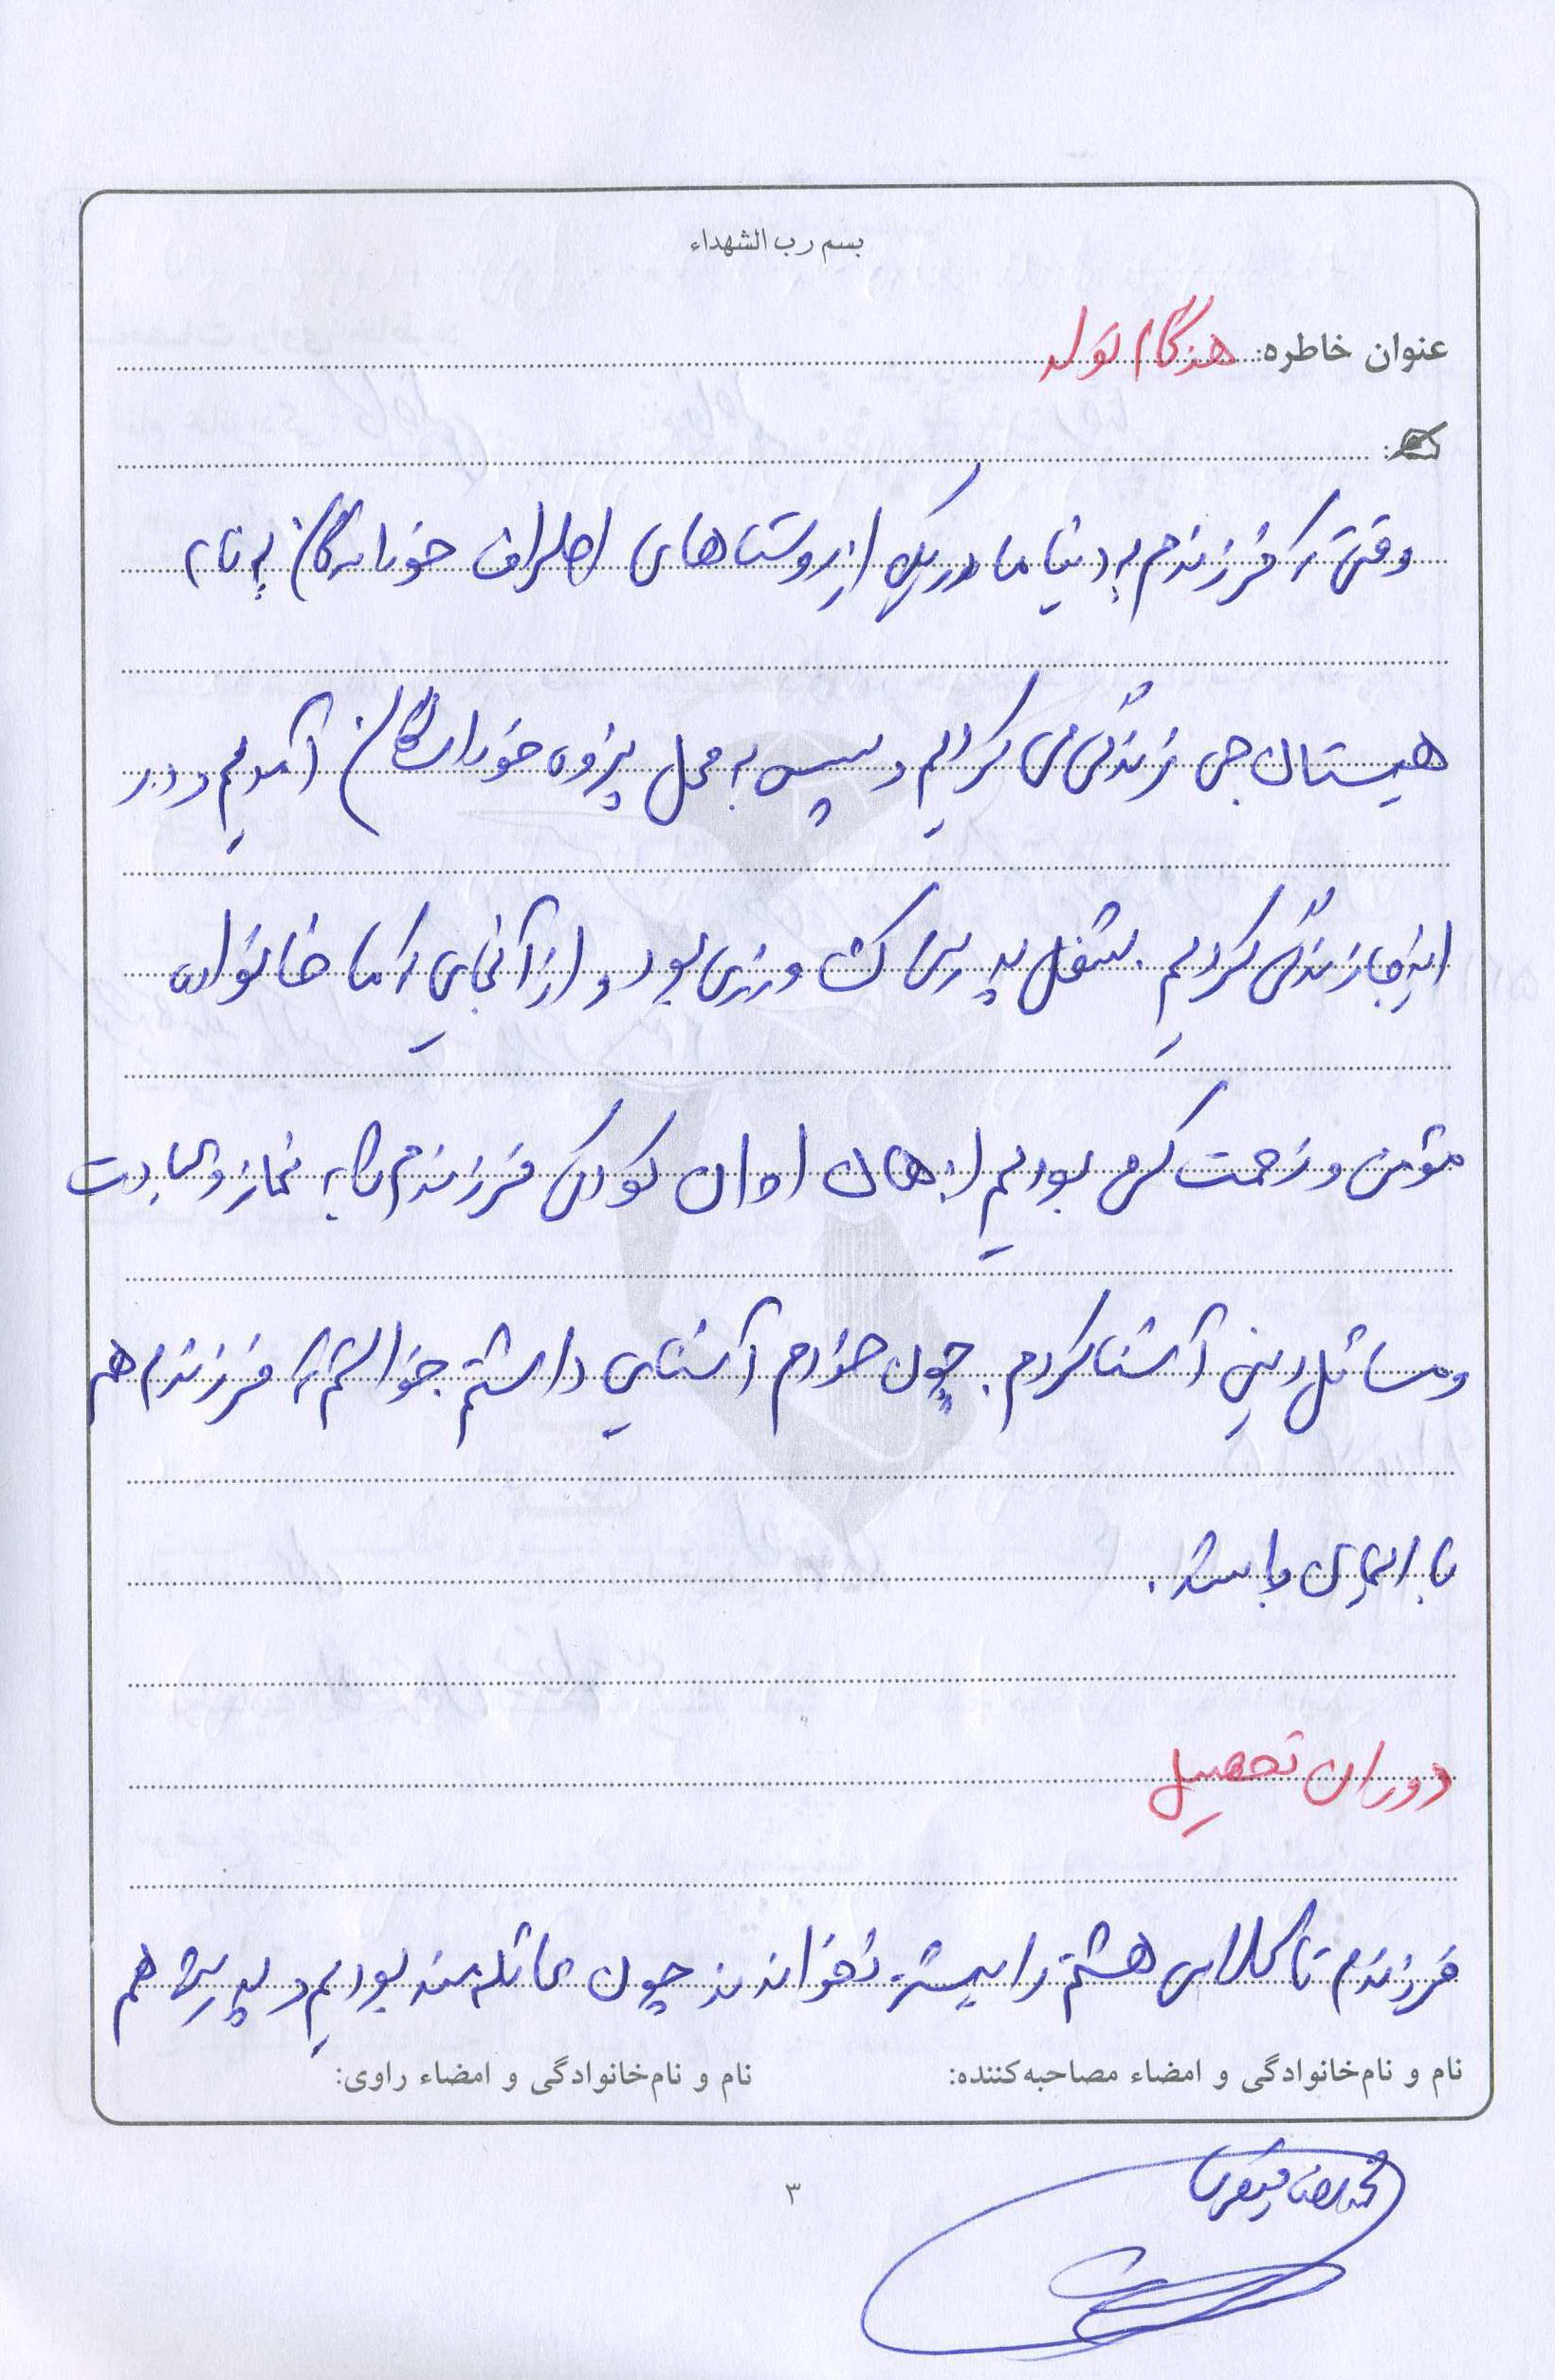 بسم رب الشهداء
عنوان خاطره: هنگام تولد
وقتی که فرزندم به دنیا ما در یکی از روستاهای اطراف خوراسگان به نام
هیستان جی زندگی می کردیم و سپس به محل پزوه خوراسگان آمدیم و در
اینجا زندگی کردیم. شغل پدرش کشاورزی بود و از آنجایی که ما خانواده
مؤمن و زحمت کش بودیم از همان اوان کودکی فرزندم را به نماز و عبادت
و مسائل دینی آشنا کردم. چون خودم آشنایی داشتم خواستم که فرزندم هم
با ایمان باشد.
دوران تحصیل
فرزندم تا کلاس هشتم را بیشتر نخواندند چون عائله مند بودیم و پدرش هم
نام و نام‌خانوادگی و امضاء مصاحبه‌کننده:
نام و نام‌خانوادگی و امضاء راوی:
محمدرضا
۳